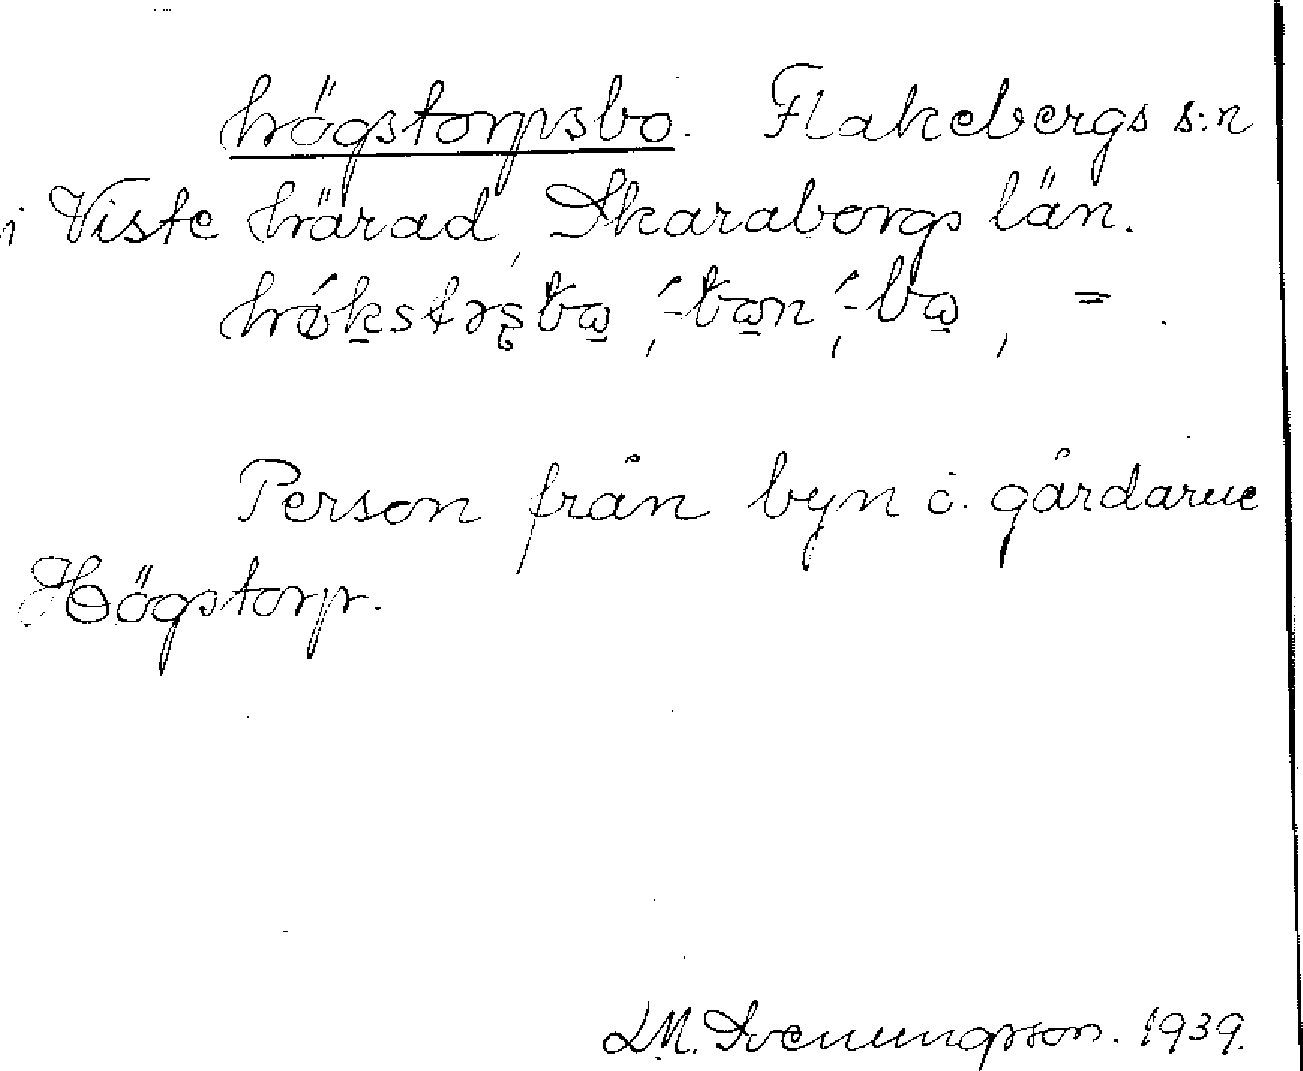 högstorpsbo. Flakebergs s:n
i Viste härad, Skaraborgs län.
Person från byn o. gårdarne
Högstorp.
L.M. Svenungsson. 1939.